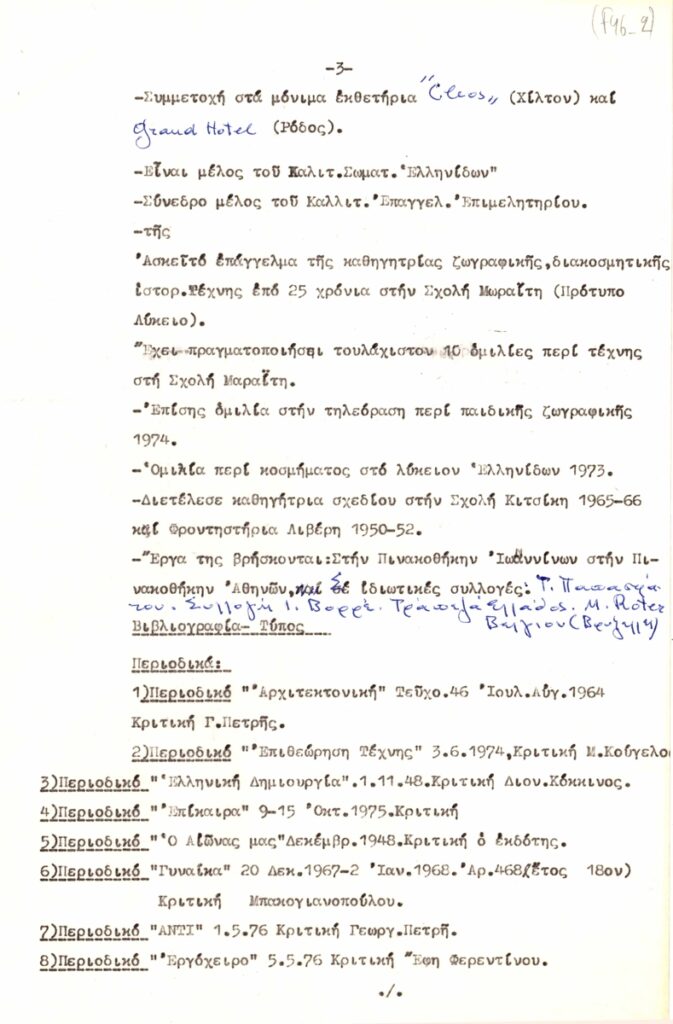 (F46-2)
-3-
-Συμμετοχή στά μόνιμα ἐκθετήρια "Cleos" (Χίλτον) καί
Grand Hotel (Ρόδος).
-Εἶναι μέλος τοῦ Καλιτ.Σωματ.Ἑλληνίδων"
-Σύνεδρο μέλος τοῦ Καλλιτ.Ἐπαγγελ.Ἐπιμελητηρίου.
-τῆς
Ἀσκεῖτό ἐπάγγελμα τῆς καθηγητρίας ζωγραφικῆς,διακοσμητικῆς
ἱστορ.Τέχνης ἐπό 25 χρόνια στήν Σχολή Μωραΐτη (Πρότυπο
Λύκειο).
Ἔχει πραγματοποιήσει τουλάχιστον 10 ὁμιλίες περί τέχνης
στή Σχολή Μαραΐτη.
-Ἐπίσης ὁμιλία στήν τηλεόραση περί παιδικῆς ζωγραφικῆς
1974.
-Ὁμιλία περί κοσμήματος στό λύκειον Ἑλληνίδων 1973.
-Διετέλεσε καθηγήτρια σχεδίου στήν Σχολή Κιτσίκη 1965-66
καί Φροντηστήρια Λιβέρη 1950-52.
-Ἔργα της βρήσκονται:Στήν Πινακοθήκην Ἰωάννίνων στήν Πι-
νακοθήκην Ἀθηνῶν,καί Σέ ἰδιωτικές συλλογές: Τ. 
του. Συλλογή Ι. Βορρέ. Τραπεζα Ελλαδος. Μ. Roter
Βιβλιογραφία- Τύπος Βελγιου (Βρυξελλη)
Περιοδικά:
1)Περιοδικό "Ἀρχιτεκτονική" Τεῦχο.46 Ἰουλ.Αὐγ.1964
Κριτική Γ.Πετρῆς.
2)Περιοδικό "Ἐπιθεώρηση Τέχνης" 3.6.1974,Κριτική Μ.Κούγελο
3)Περιοδικό "Ἑλληνική Δημιουργία".1.11.48.Κριτική Διον.Κόκκινος.
4)Περιοδικό "Ἐπίκαιρα" 9-15 Ὀκτ.1975.Κριτική
5)Περιοδικό "Ὁ Αἰῶνας μας"Δεκέμβρ.1948.Κριτική ὁ ἐκδότης.
6)Περιοδικό "Γυναίκα" 20 Δεκ.1967-2 Ἰαν.1968.Ἀρ.468(ἔτος 18ον)
Κριτική Μπακογιανοπούλου.
7)Περιοδικό "ΑΝΤΙ" 1.5.76 Κριτική Γεωργ.Πετρῆ.
8)Περιοδικό "Ἐργόχειρο" 5.5.76 Κριτική Ἔφη Φερεντίνου.
./.